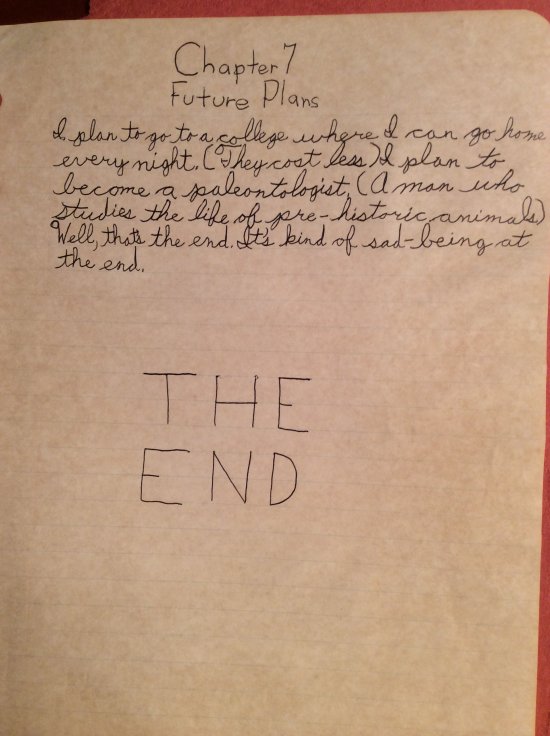 Chapter 7
Future Plans
I plan to go to a college where I can go home
every night. (They cost less) I plan to
become a paleontologist, (A man who
studies the life of pre-historic animals.)
Well, thats the end. It's kind of sad-being at
the end.
THE
END